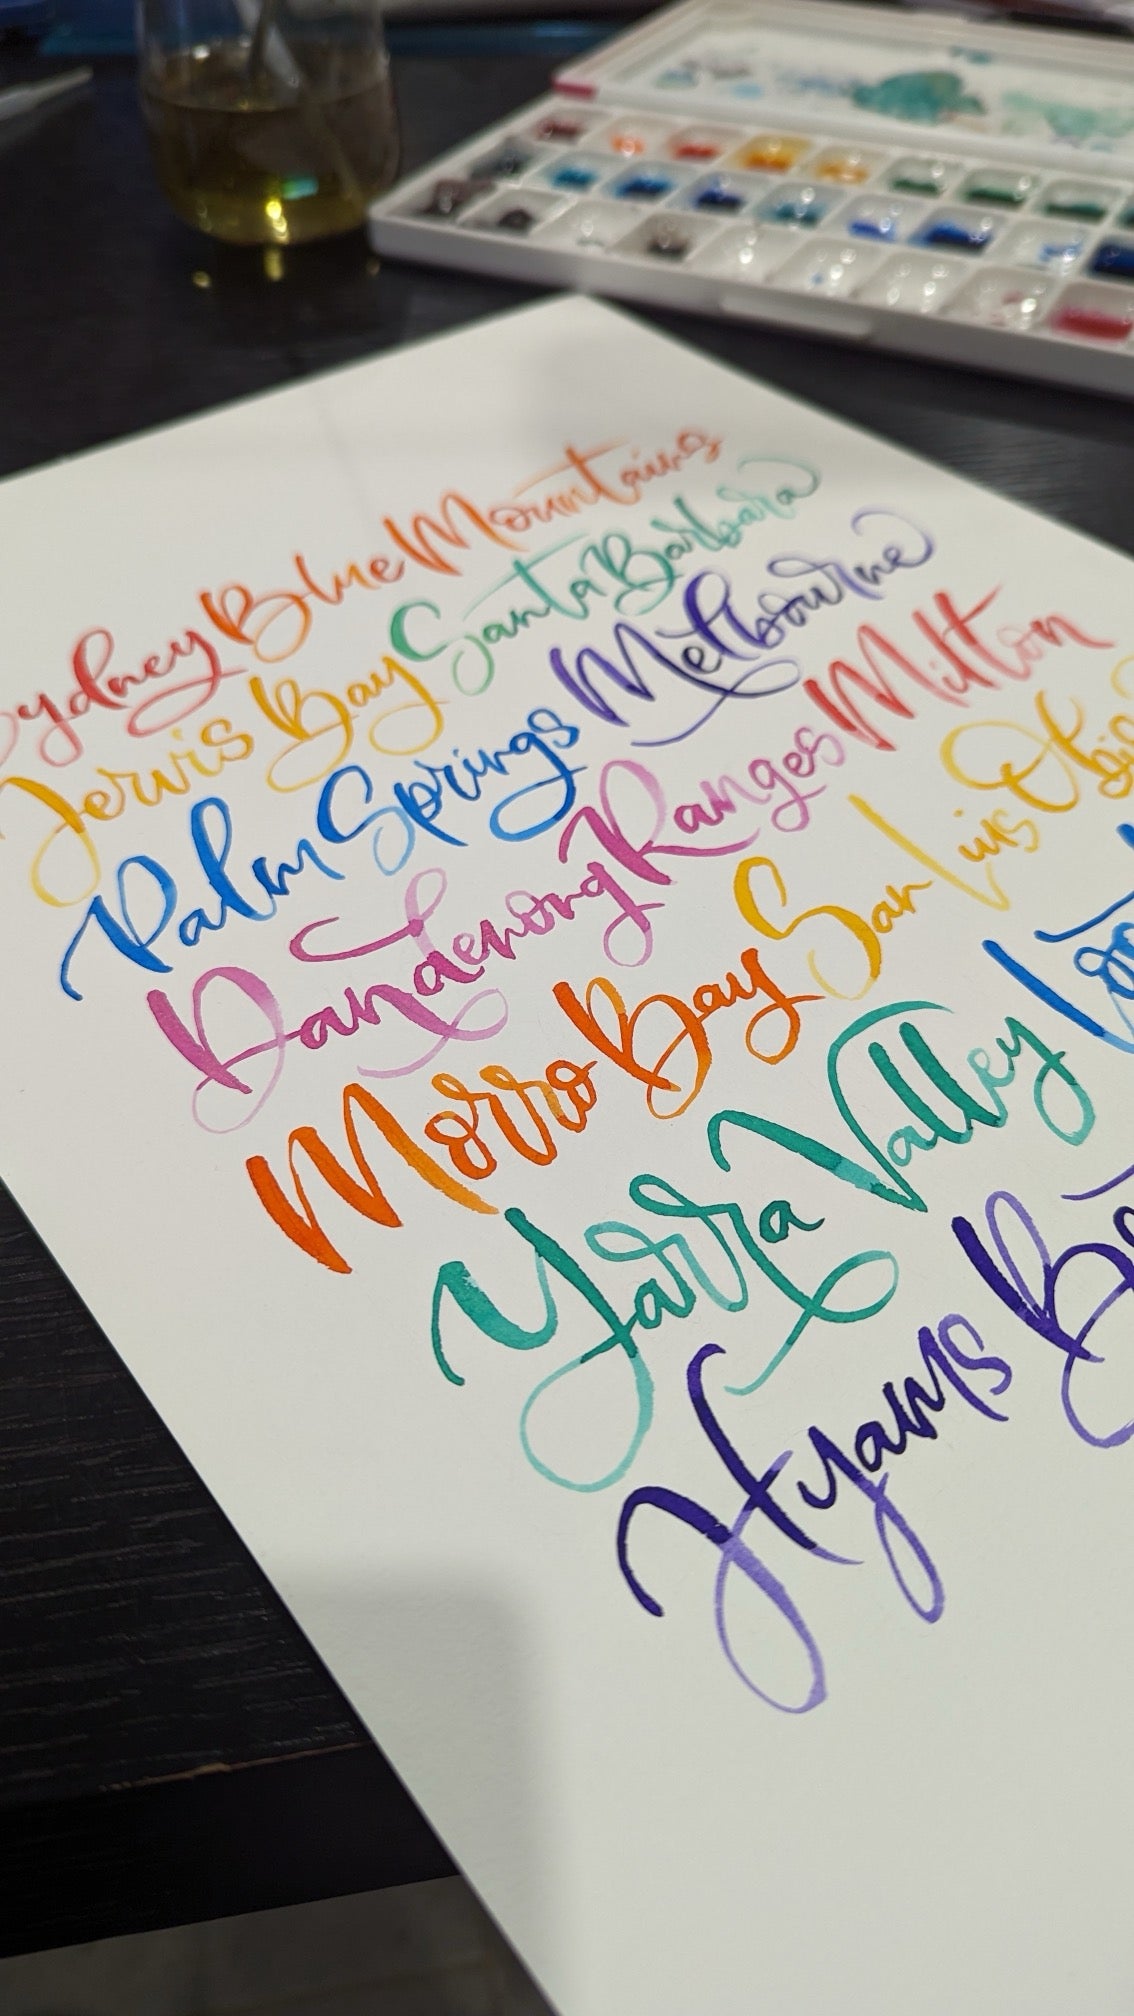 Sydney Blue Mountains
Jervis Bay Santa Barbara
Palm Springs Melbourne
Dandenong Ranges Milton
Morro Bay San Luis
Yarra Valley
Hyams